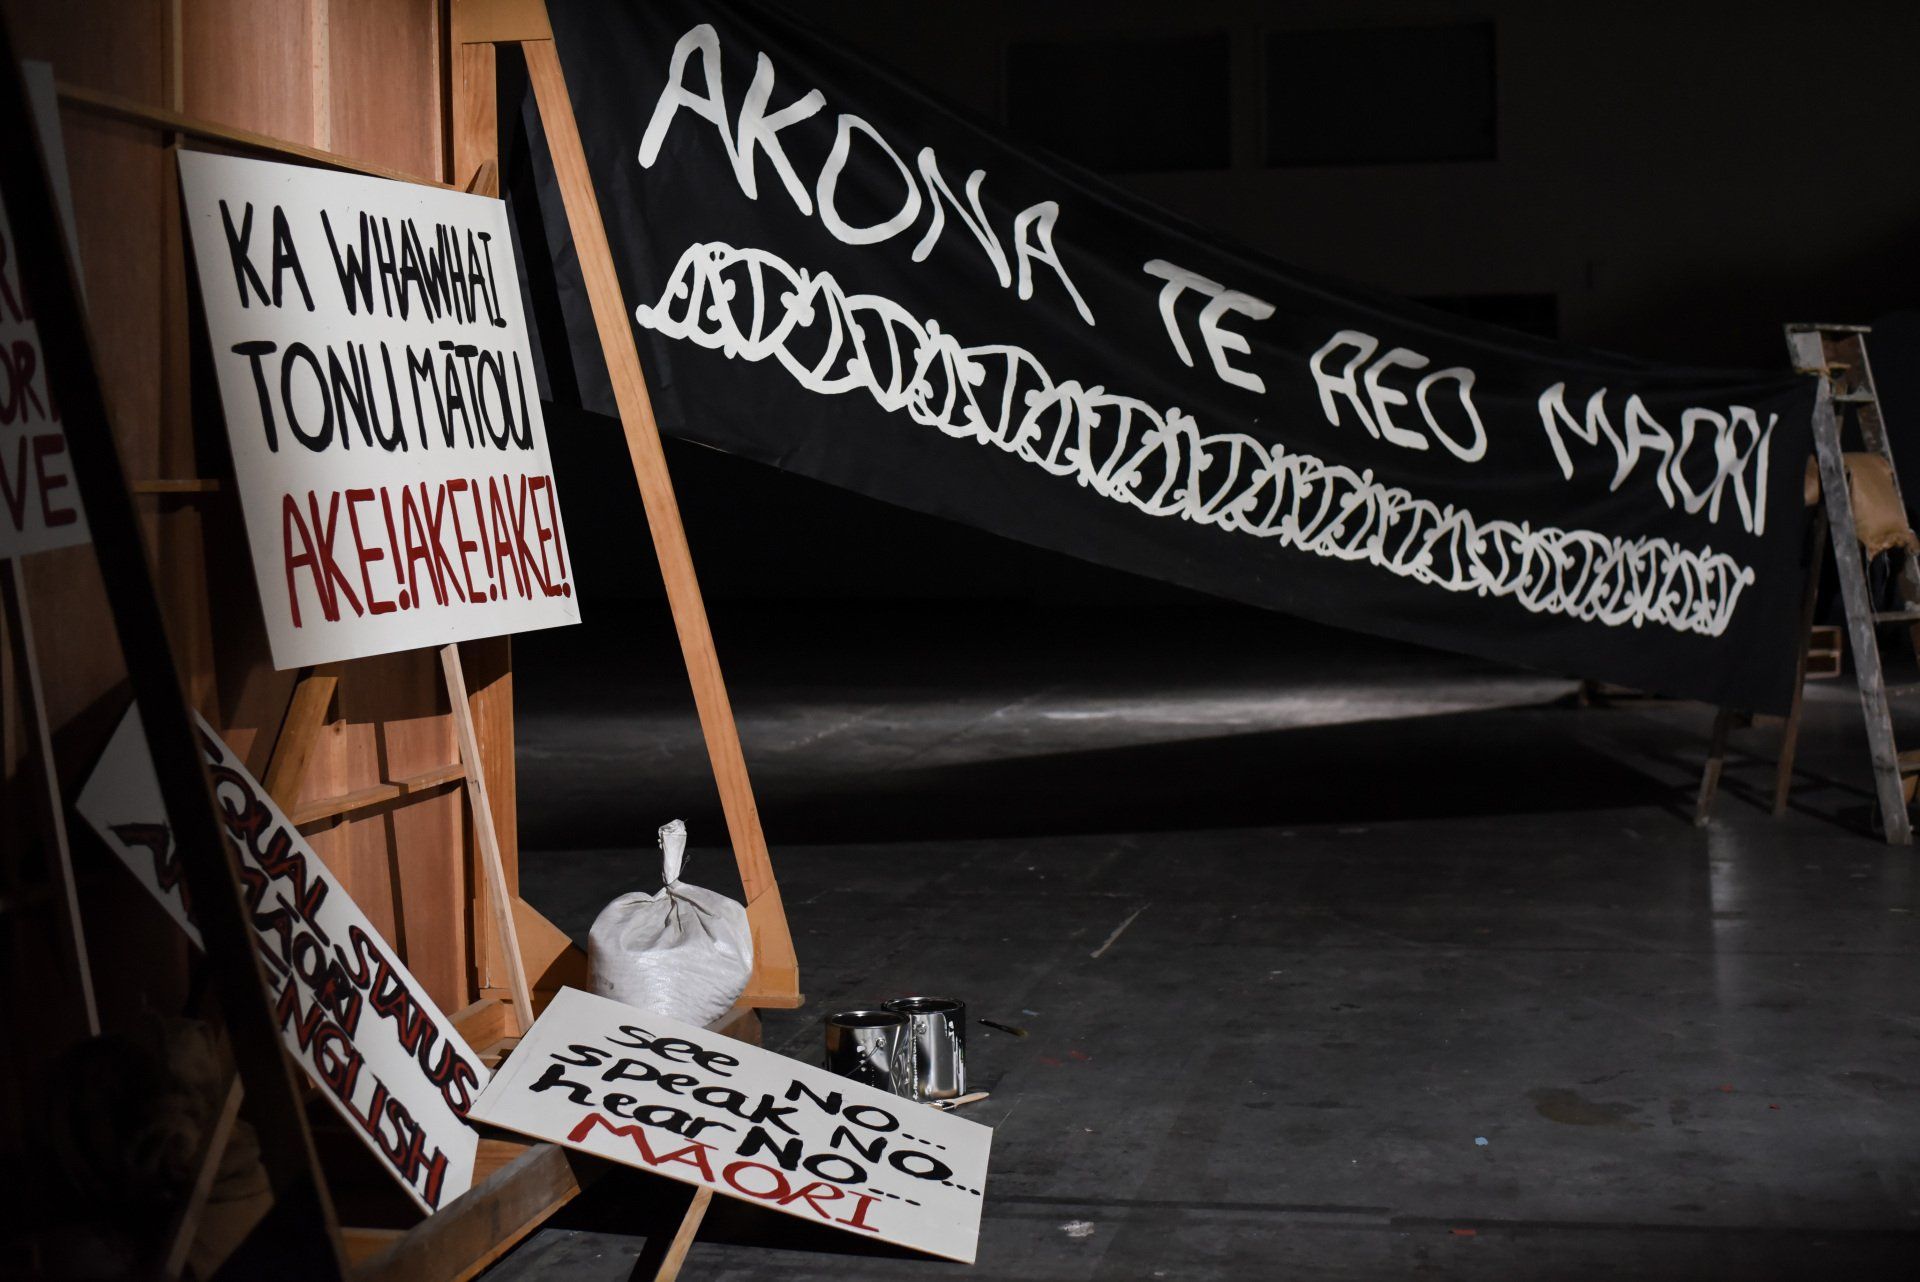 AKONA TE REO MAORI
KA WHAWHAI
TONU MĀTOU
AKE! AKE! AKE!
VE
EQUAL STATUS
MĀORI
ENGLISH
see NO...
speak NO...
hear NO...
MĀORI